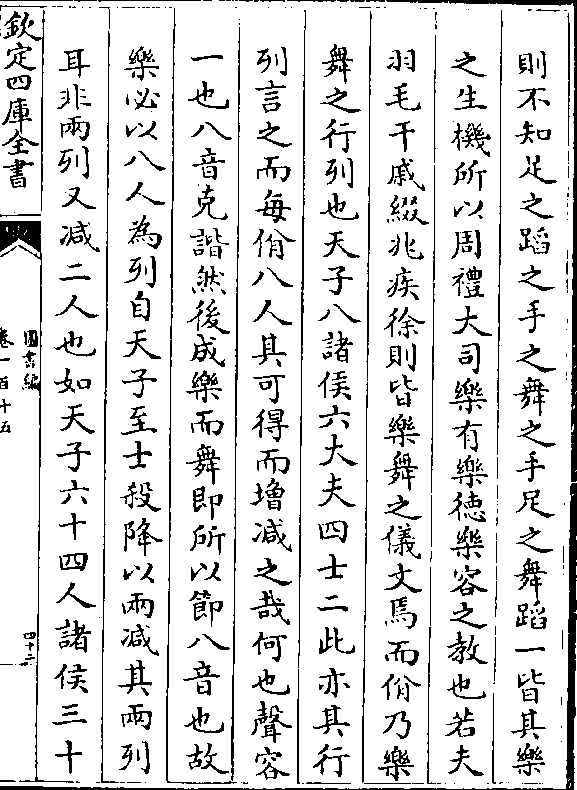 則不知足之蹈之手之舞之手足之舞蹈一皆其樂
之生機所以周禮大司樂有樂徳樂容之教也若夫
羽毛干戚綴兆疾徐則皆樂舞之儀文焉而佾乃樂
舞之行列也天子八諸侯六大夫四士二此亦其行
列言之而每佾八人其可得而增减之哉何也聲容
一也八音克諧然後成樂而舞即所以節八音也故
樂必以八人為列自天子至士殺降以兩减其兩列
耳非兩列又减二人也如天子六十四人諸侯三十
欽定四庫全書
圖書編
卷一百十五
四十二